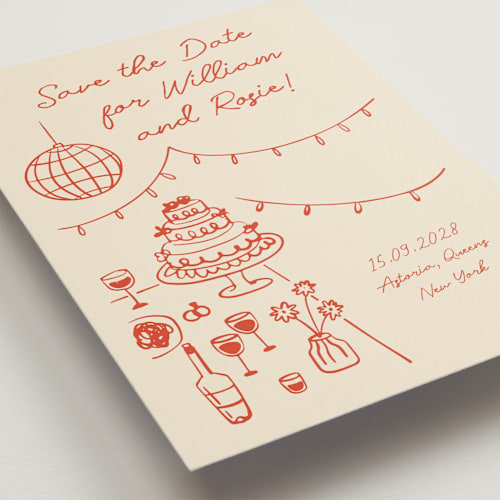 Save the Date
for William
and Rosie!
15.09.2028
Astoria, Queens
New York